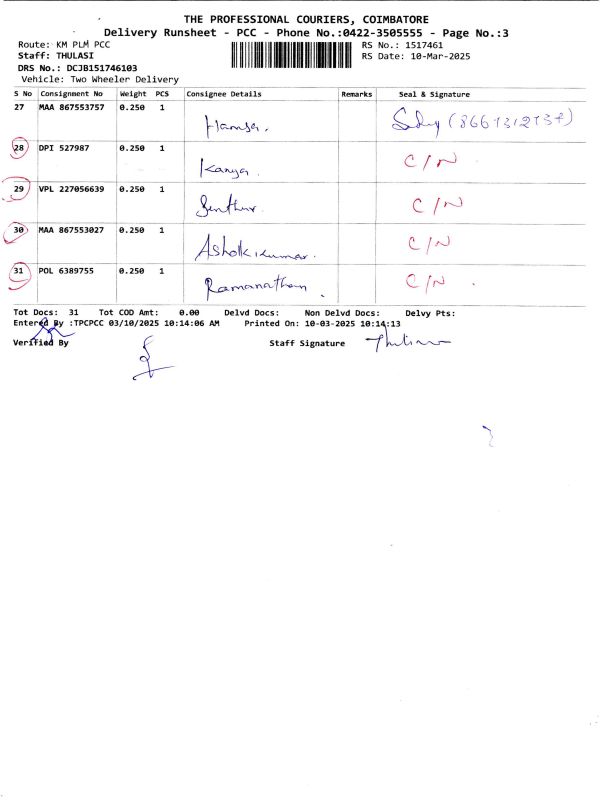 THE PROFESSIONAL COURIERS, COIMBATORE
Delivery Runsheet - PCC - Phone No.:0422-3505555 - Page No.:3
Route: KM PLM PCC
RS No.: 1517461
Staff: THULASI
RS Date: 10-Mar-2025
DRS No.: DCJB151746103
Vehicle: Two Wheeler Delivery
S No Consignment No Weight PCS Consignee Details Remarks Seal & Signature
27 MAA 867553757 0.250 1 Hamsa.
28 DPI 527987 0.250 1 Kanya. C/N
29 VPL 227056639 0.250 1 Senthur. C/N
30 MAA 867553027 0.250 1 Ashokkumar. C/N
31 POL 6389755 0.250 1 Ramanathan. C/N
Tot Docs: 31 Tot COD Amt: 0.00 Delvd Docs: Non Delvd Docs: Delvy Pts:
Entered By :TPCPCC 03/10/2025 10:14:06 AM Printed On: 10-03-2025 10:14:13
Verified By Staff Signature